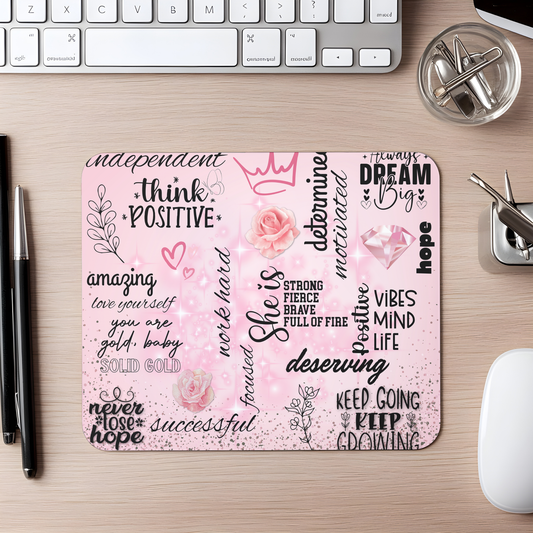 independent
think
POSITIVE
determined
motivated
Always
DREAM
Big
hope
amazing
love yourself
you are
gold, baby
SOLID GOLD
work hard
She is
STRONG
FIERCE
BRAVE
FULL OF FIRE
Positive
VIBES
MIND
LIFE
focused
deserving
never
lose
hope
successful
KEEP GOING
KEEP
GROWING